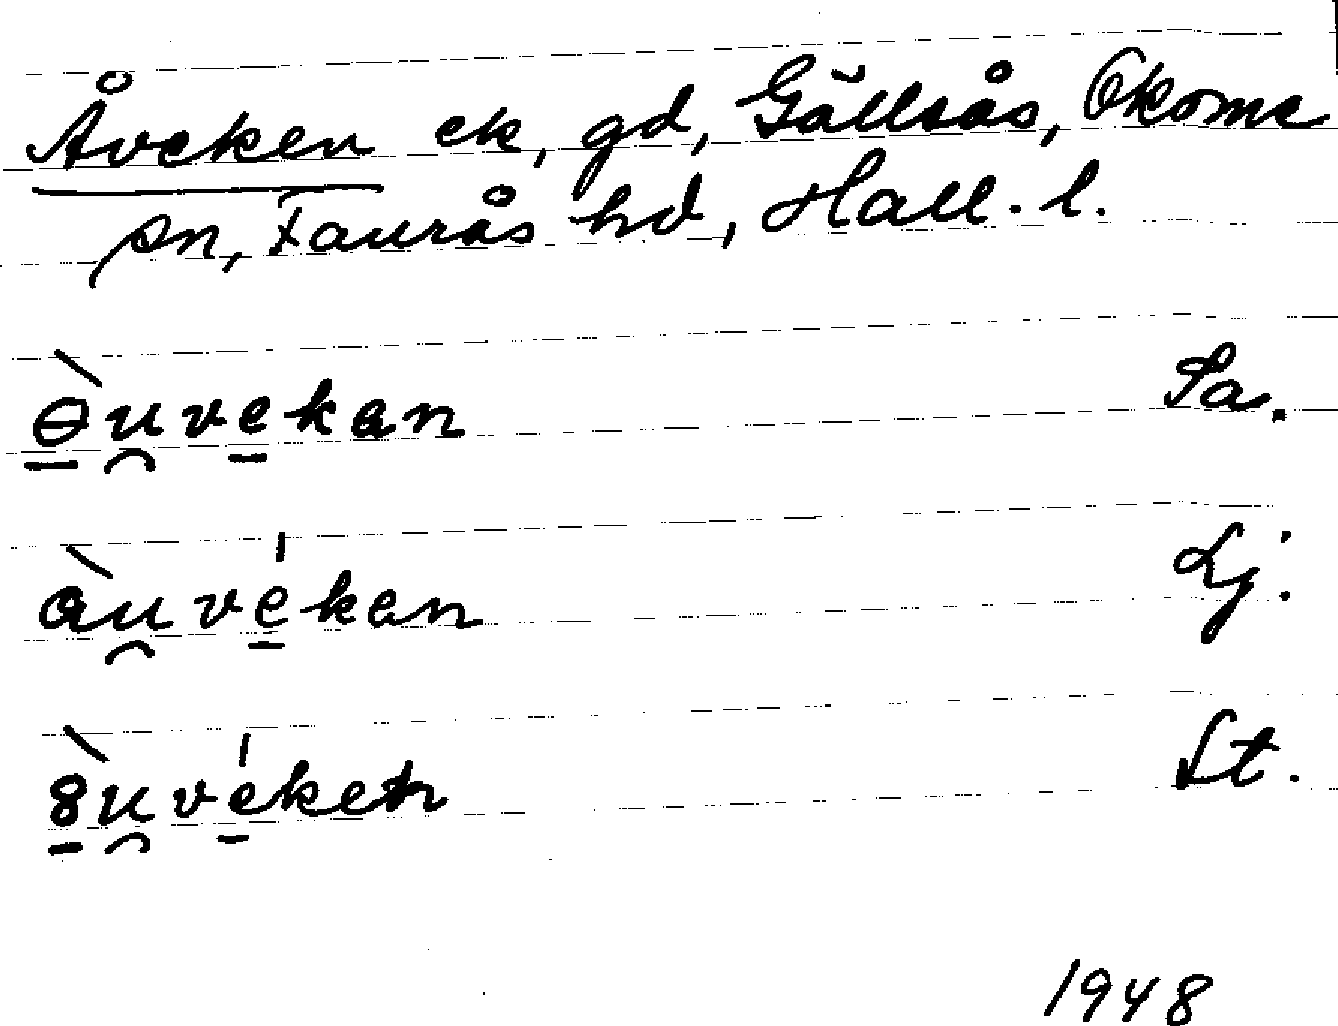 Åveken ek, gd, Gällsås, Okome
sn, Faurås hd, Hall. l.
ɵ̀u̯vekan Sa.
àu̯vékan Lj.
8̀u̯véken St.
1948